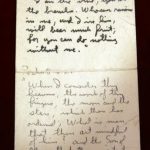 I am the vine, you are
the branches. Whoever remains
in me, and I in him,
will bear much fruit;
for you can do nothing
without me.
When I consider the
heavens the work of thy
fingers, the moon and the
stars, which thou hast
ordained; What is man,
that thou art mindful
of him and the Son